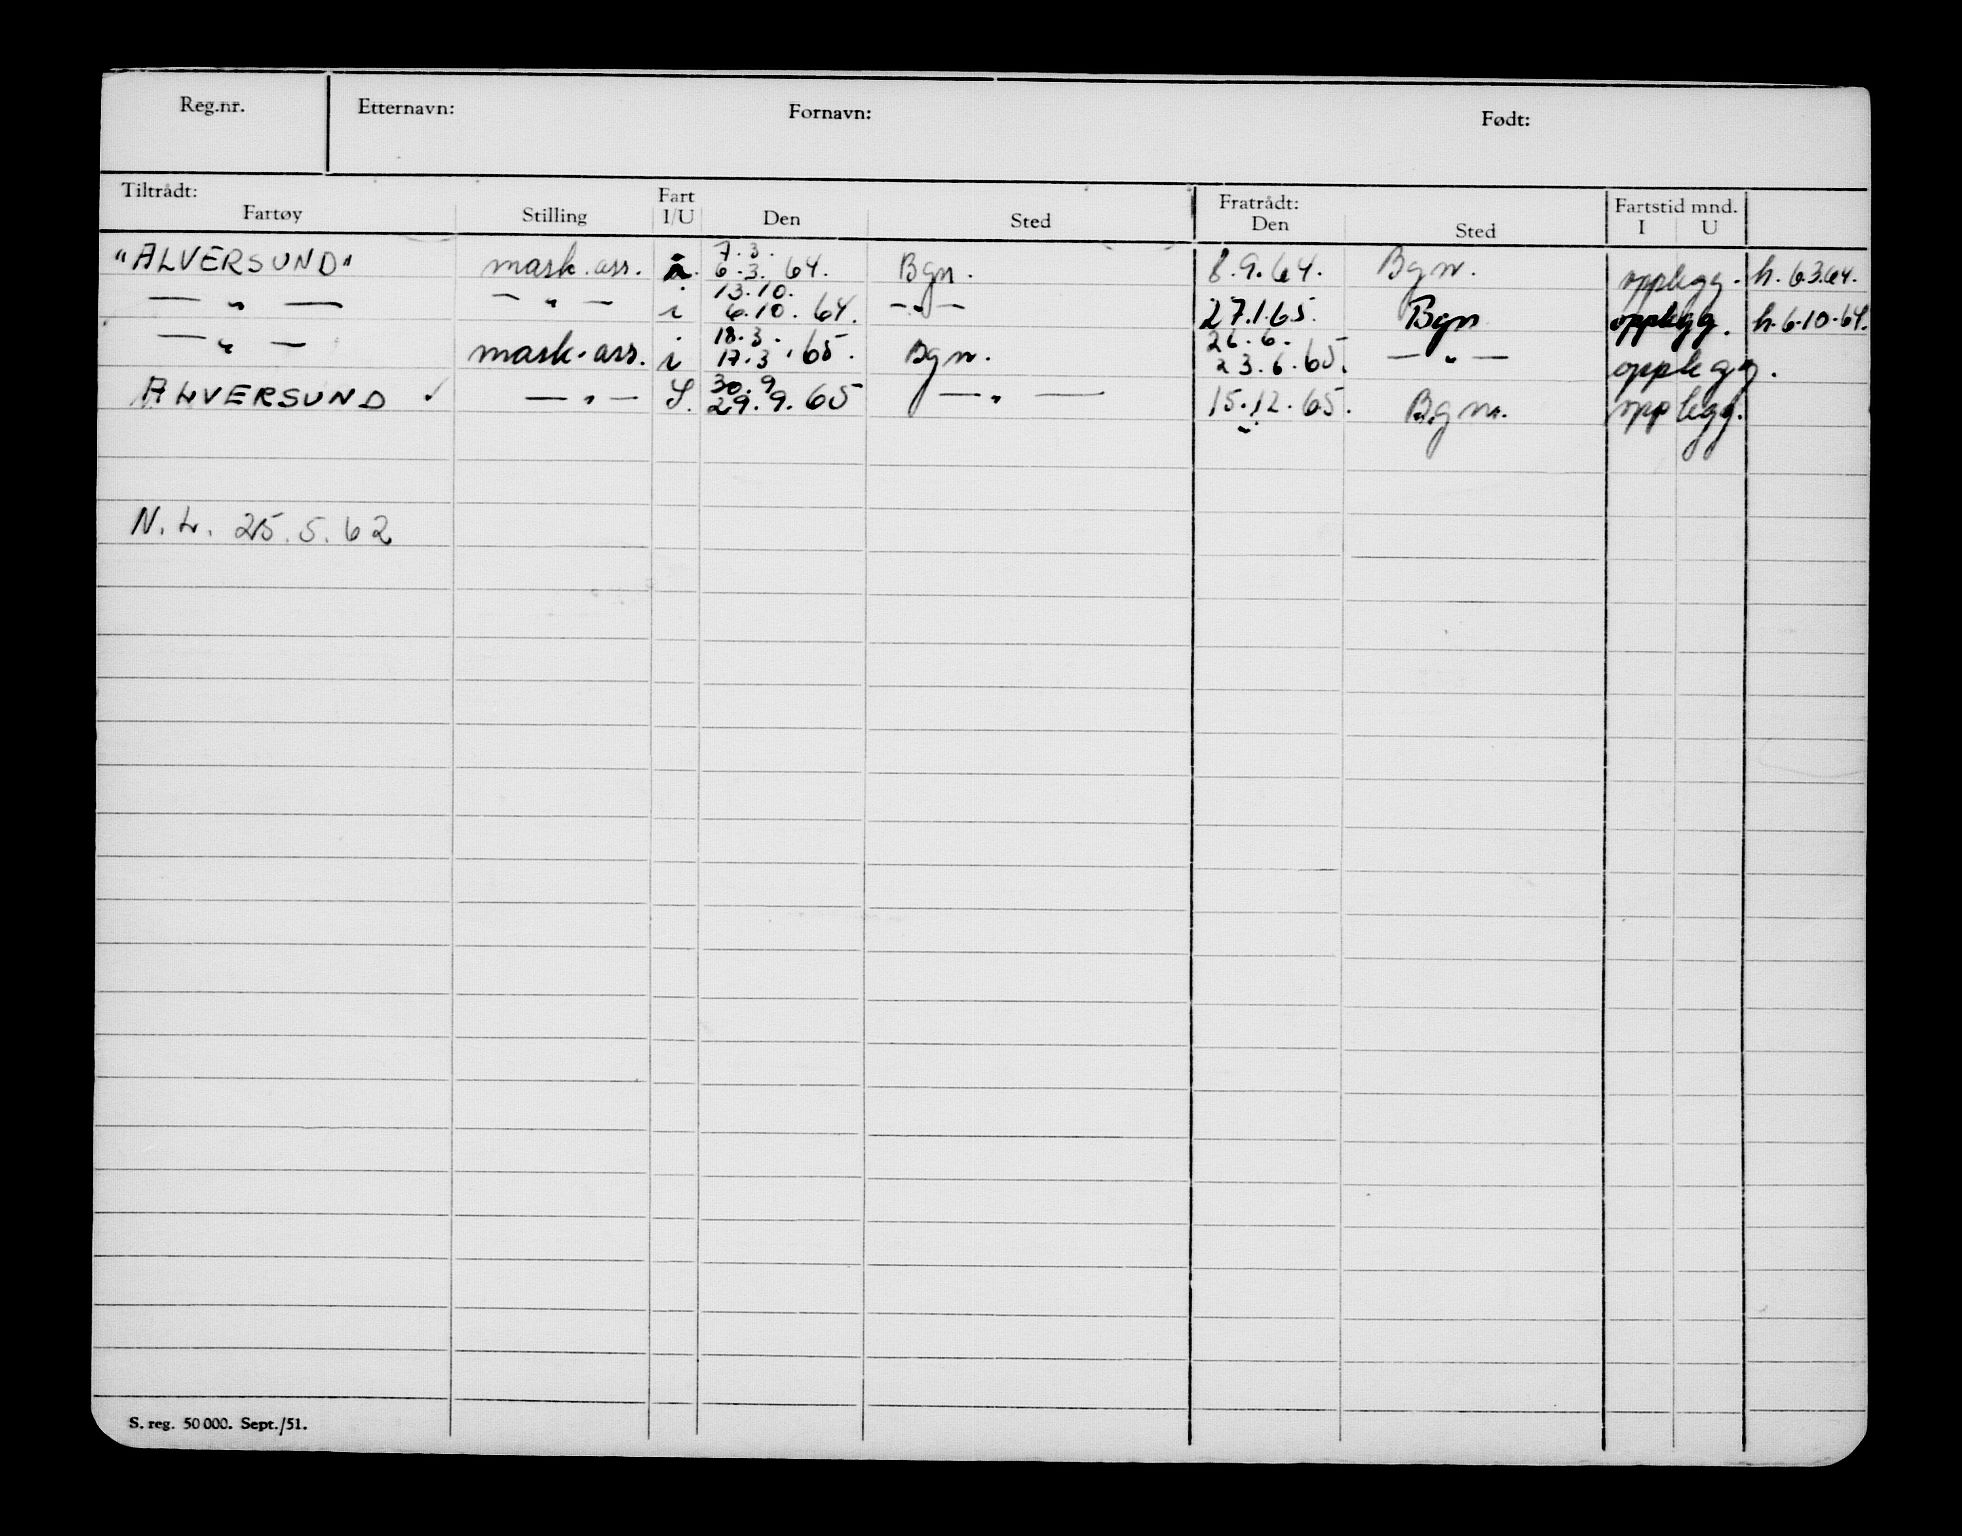 Reg.nr. Etternavn: Fornavn: Født:
Tiltrådt: Fart Fratrådt: Fartstid mnd.
Fartøy Stilling I/U Den Sted Den Sted I U
7.3.
"ALVERSUND" mask.ass. i. 6.3. 64. Bgn. 8.9.64. Bgn. opplegg. h. 6.3.64.
13.10.
— " — — " — i 6.10. 64. — " — 27.1.65. Bgn opplegg. h. 6.10.64.
18.3. 26.6.
— " — mask.ass. i 17.3.65. Bgn. 23.6.65. — " — opplegg.
30.9
ALVERSUND ✓ — " — 29.9.65 — " — 15.12.65. Bgn. opplegg.
N.L. 25.5.62
S. reg. 50 000. Sept./51.